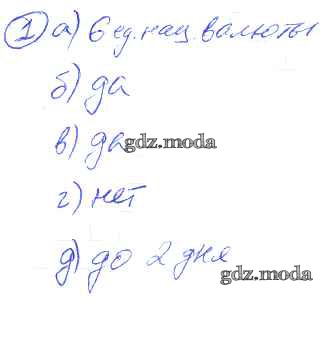 1 а) 6 ед. нац. валюты
б) да
в) да
gdz.moda
г) нет
д) до 2 дня
gdz.moda